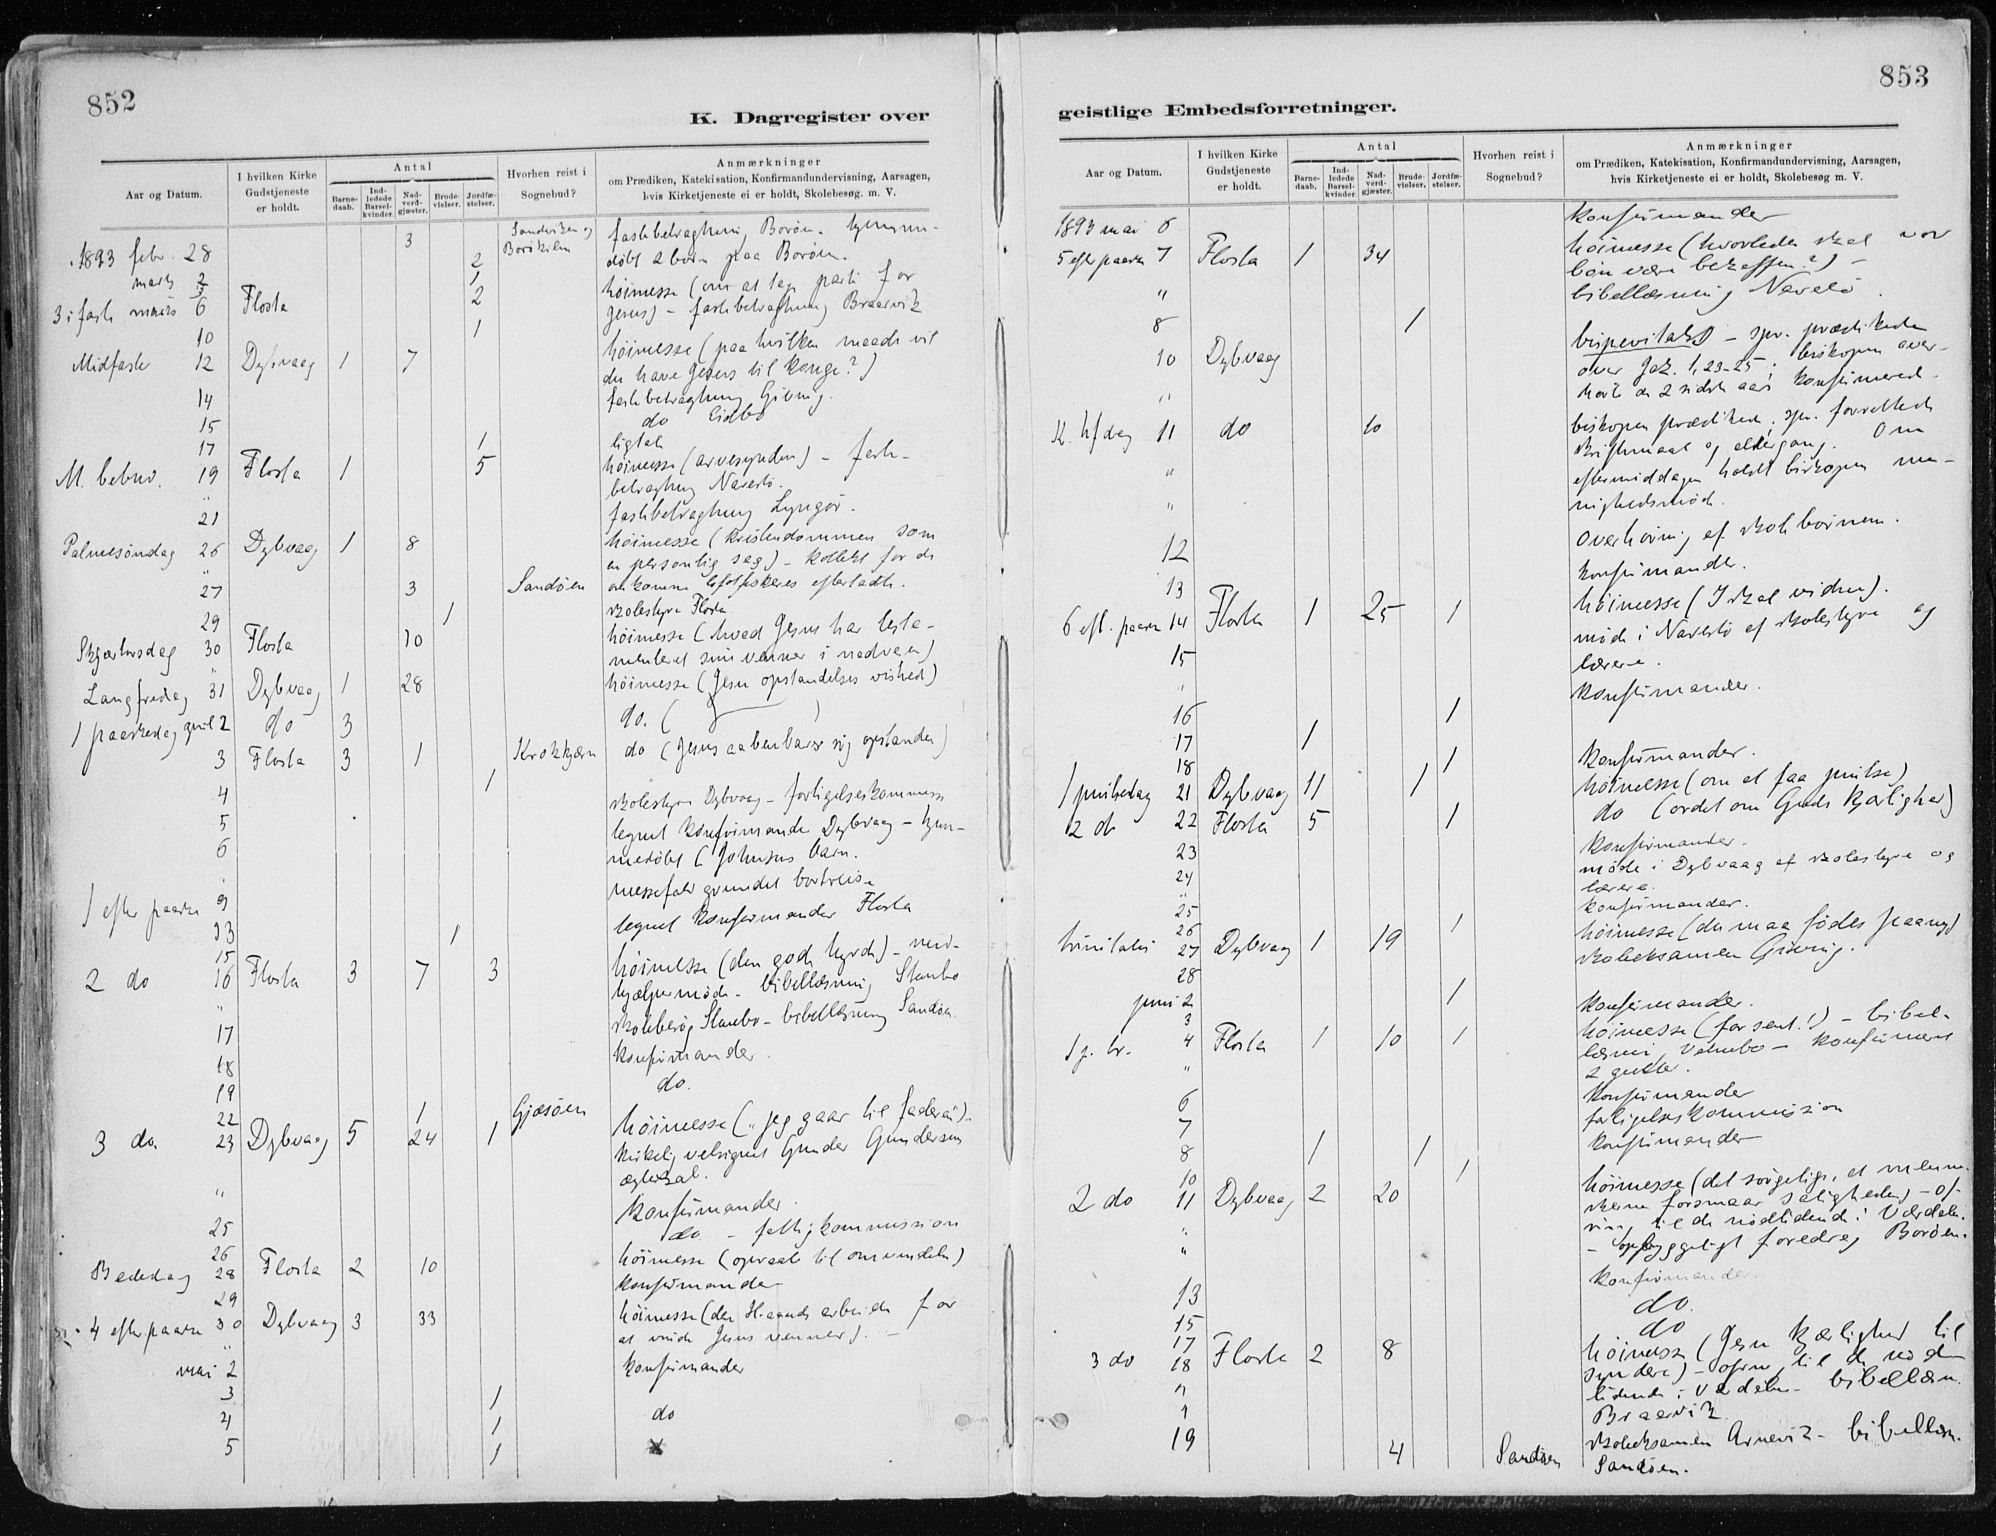 852
K. Dagregister over
Aar og Datum.
I hvilken Kirke Gudstjeneste er holdt.
Antal
Barne-daab.
Ind-ledede Barsel-kvinder.
Nad-verd-gjæster.
Brude-vielser.
Jordfæ-stelser.
Hvorhen reist i Sognebud?
Anmærkninger
om Prædiken, Katekisation, Konfirmandundervisning, Aarsagen,
hvis Kirketjeneste ei er holdt, Skolebesøg. m. V.
1893 febr. 28 3 Sandviken og fastebetragtning Borøen. hjemme-
2 døbt 2 børn paa Borøen.
marts 2 1 høimesse (om at tage parti for
3 i faste 6 Flosta 2 Jesus) – fastebetragtning Braarvik
10 1
Midfaste 12 Dybvaag 1 7 høimesse (paa hvilken maade vil
du have Jesus til konge?)
14 fastebetragtning Giving.
15 do Eidbo
17 1 ligtale
M. bebud. 19 Flosta 1 5 høimesse (arvesynden) – faste-
" betragtning Navestø.
21 fastebetragtning Lyngør.
Palmesøndag 26 Dybvaag 1 8 høimesse (kristendommen som
" en personlig sag) – kollekt for de
27 3 Sandøen omkomne efterladte.
29 1 skolestyre Flosta
Skjærtorsdag 30 Flosta 10 høimesse (hvad Jesus har testa-
" menteret sine venner i nadveren)
Langfredag 31 Dybvaag 1 28 høimesse (Jesu opstandelses vished)
1 paaskedag april 2 do 3 do. ( )
3 Flosta 3 1 Krokkjærn do (Jesus aabenbarer sig opstanden)
4 1
5 skolestyre Dybvaag – forligelseskommission
6 tegnet konfirmander Dybvaag – hjem-
medøbt barn.
1 efter paaske 9 messefald grundet bortreise
13 1 tegnet konfirmander Flosta
15
2 do 16 Flosta 3 7 3 høimesse (den gode hyrde) – med-
" hjælpermøde – bibellæsning Staubo
17 skolebesøg Staubo – bibellæsning Sandøen
18 konfirmander
19 do.
22 1 Gjæsøen
3 do. 23 Dybvaag 5 24 1 høimesse („jeg gaar til faderen")
kirkelig velsignet Gunder Gundersens
" ægteskab.
25 konfirmander.
26 do – fattigkommission
Bededag 28 Flosta 2 10 høimesse (opraab til omvendelse)
29 konfirmander
4 efter paaske 30 Dybvaag 3 33 høimesse (den H. aands arbeide for
" at vinde Jesus venner). –
mai 2 konfirmander
3 1
4 1 do
5 1
853
geistlige Embedsforretninger.
Aar og Datum.
I hvilken Kirke Gudstjeneste er holdt.
Antal
Barne-daab.
Ind-ledede Barsel-kvinder.
Nad-verd-gjæster.
Brude-vielser.
Jordfæ-stelser.
Hvorhen reist i Sognebud?
Anmærkninger
om Prædiken, Katekisation, Konfirmandundervisning, Aarsagen,
hvis Kirketjeneste ei er holdt, Skolebesøg m. V.
1893 mai 6 konfirmander
5 efter paaske 7 Flosta 1 34 høimesse (hvorledes skal vor
bøn være beskaffen?) –
" bibellæsning Navestø.
8 1
10 Dybvaag bispevisitats – spr. prædikede
over Jak. 1, 23-25; biskopen over-
" hørte de 2 sidste aars konfirmerede.
K. hf dag 11 do 10 biskopen prædikede, spr. forrettede
skriftemaal og altergang. Om
" eftermiddagen holdt biskopen me-
" nighedsmøde.
12 overhøring af skolebørnene.
13 konfirmander.
6 eft. paaske 14 Flosta 1 25 1 høimesse (I skal vidne).
15 møde i Navestø af skolestyre og
" lærere.
16 1 konfirmander.
17 1
18 1 konfirmander.
1 pintsedag 21 Dybvaag 11 1 høimesse (om at faa pintse)
2 do 22 Flosta 5 1 do (ordet om Guds kjærlighed)
23 konfirmander.
24 møde i Dybvaag af skolestyre og
" lærere.
25 konfirmander.
26 1
trinitatis 27 Dybvaag 1 19 høimesse (du maa fødes paany)
28 skoleeksamen Giving.
juni 2 1
3 konfirmander.
1 s. tr. 4 Flosta 1 10 1 høimesse (for sent!) – bibel-
" konfirmeret
2 gutter.
6 konfirmander
7 forligelseskommission
8 1 1 konfirmander
10 1
2 do 11 Dybvaag 2 20 høimesse (det sørgelige, at menne-
" skene forsmaar saligheden) – of-
" ring til de nødlidende i Værdalen.
– opbyggeligt foredrag Borøen.
13 konfirmander.
15 do.
17 do
3 do 18 Flosta 2 8 høimesse (Jesu kjærlighed til
" syndere) – ofring til de nød-
" lidende i Værdalen – bibellæsn.
Braarvik
19 4 Sandøen skoleeksamen Arnevik – bibellæsn.
Sandøen.